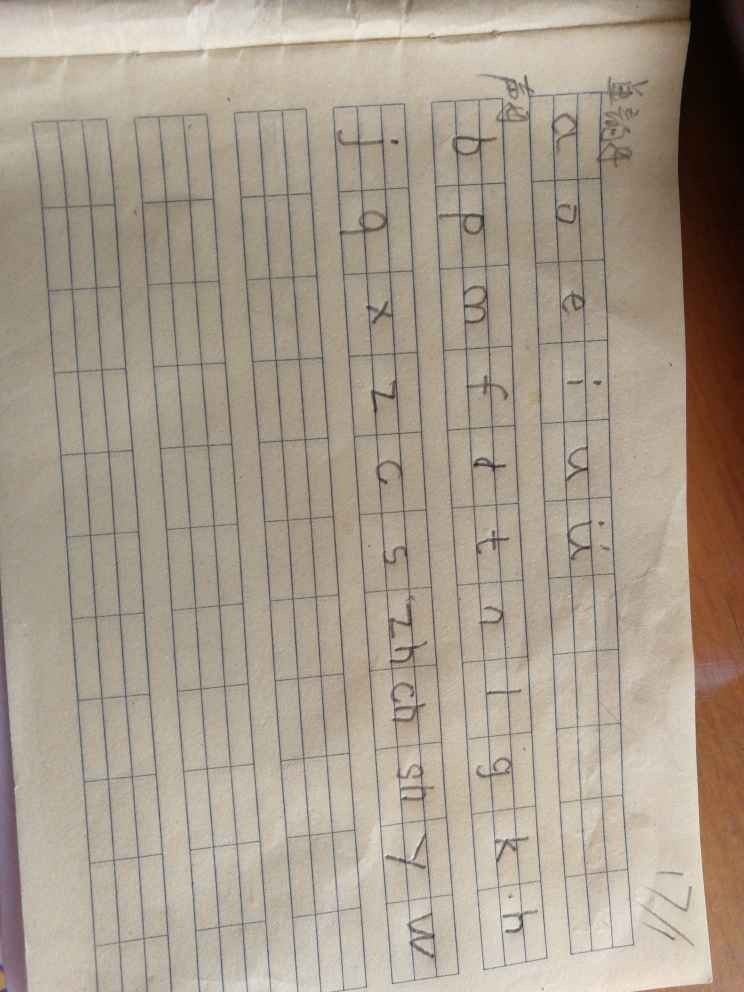 单韵母
a o e i u ü
声母
b p m f d t n l g k h
j q x z c s zh ch sh y w